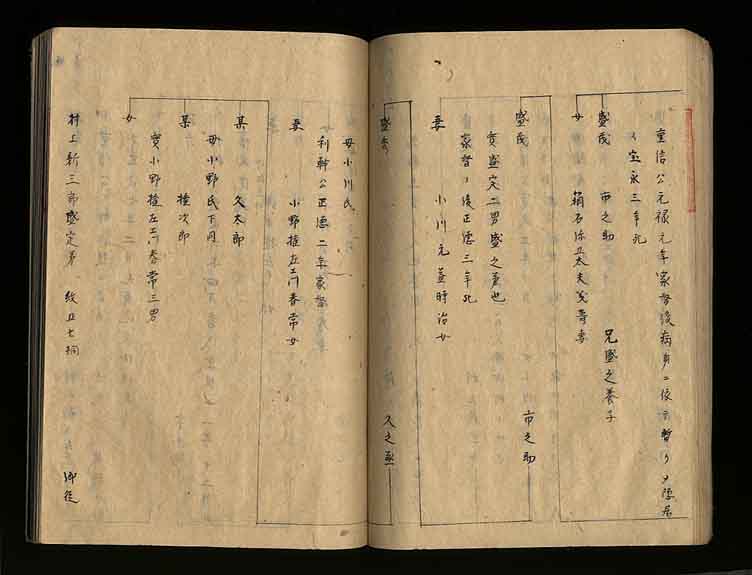 重信公元禄元年家督後病身ニ依而暫クメ隠居
宝永三年死
盛茂 市之助 兄盛之養子
女 五太夫 妻
盛茂 市之助
実盛定二男盛之弟也
家督ノ後正徳三年死
妻 小川元益時治女
盛 久之丞
母小川氏
利幹公正徳二年家督
妻 小野権左エ門春常女
某 久太郎
母小野氏下同
某 権次郎
実小野権左エ門春常三男
女
村上新三郎盛定弟 紋五七桐 御徒